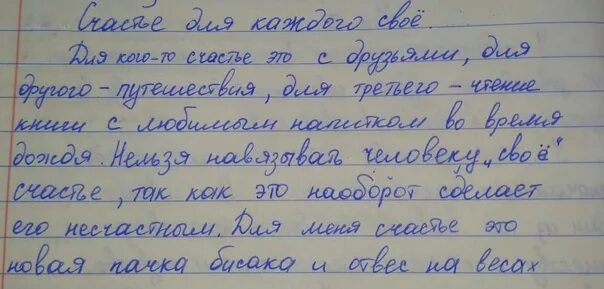 Счастье для каждого своё.
Для кого-то счастье это с друзьями, для
другого – путешествия, для третьего – чтение
книги с любимым напитком во время
дождя. Нельзя навязывать человеку „своё"
счастье, так как это наоборот сделает
его несчастным. Для меня счастье это
новая пачка бисака и отвес на весах